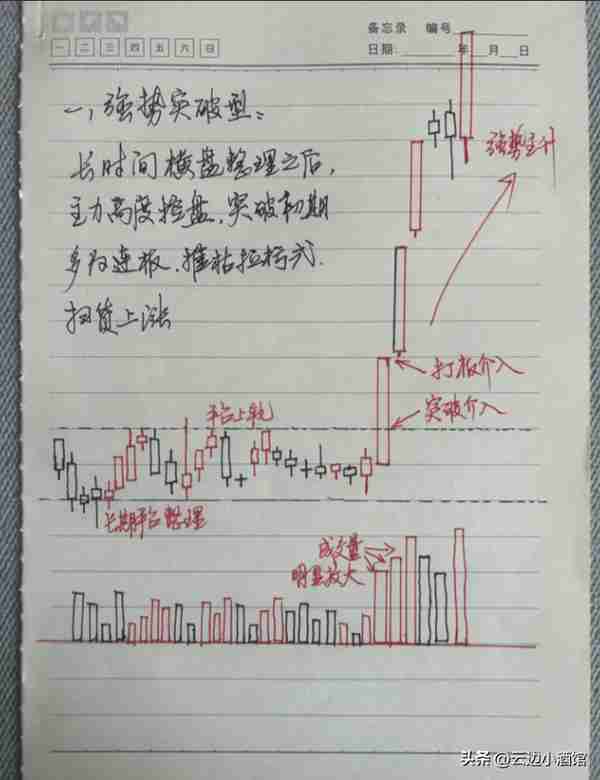 一二三四五六日
备忘录 编号
日期: 年 月 日
一、强势突破型:
长时间横盘整理之后,
主力高度控盘,突破初期
多为连板、推枯拉朽式.
扫货上涨
强势主升
打板介入
突破介入
平台上轨
长期平台整理
成交量
明显放大
头条 @云边小酒馆